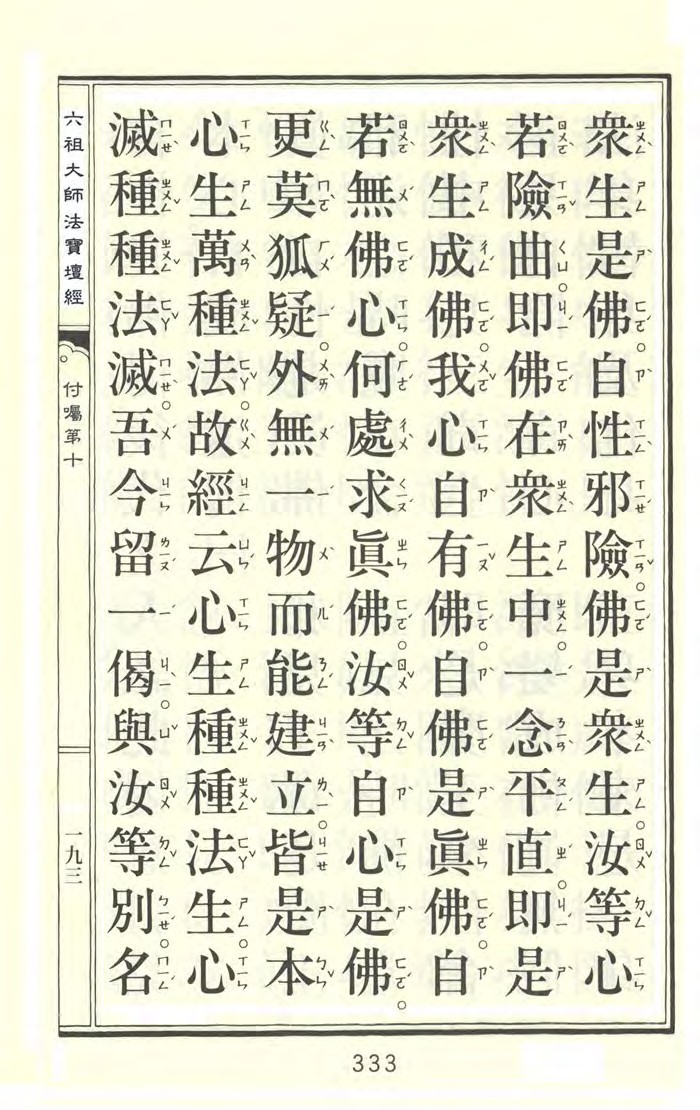 衆生是佛自性邪險佛是衆生汝等心
若險曲即佛在衆生中一念平直即是
衆生成佛我心自有佛自佛是眞佛自
若無佛心何處求眞佛汝等自心是佛
更莫狐疑外無一物而能建立皆是本
心生萬種法故經云心生種種法生心
滅種種法滅吾今留一偈與汝等別名
六祖大師法寶壇經
付囑第十
一九三
333